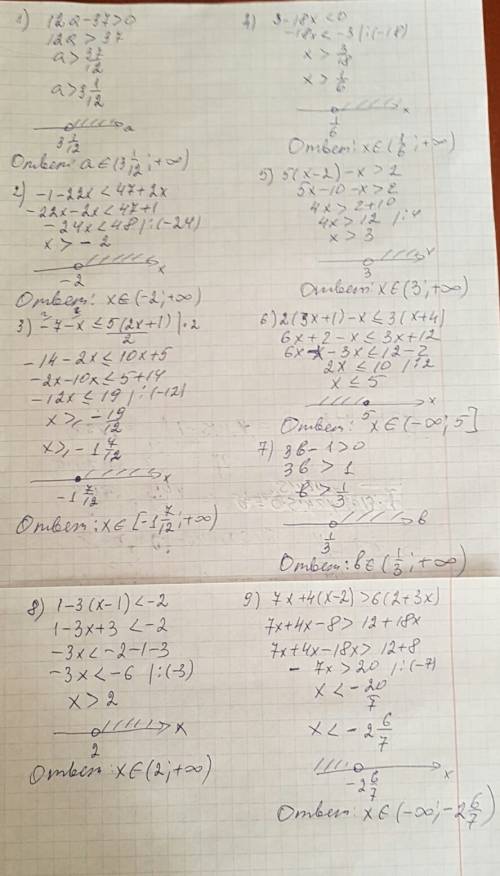 1) 12a-37>0
12a > 37
a > 37/12
a > 3 1/12
3 1/12 a
Ответ: a∈(3 1/12; +∞)
2) -1-22x < 47+2x
-22x-2x < 47+1
-24x < 48 |:(-24)
x > -2
-2 x
Ответ: x∈(-2; +∞)
3) -7-x ≤ 5(2x+1)/2 |·2
-14-2x ≤ 10x+5
-2x-10x ≤ 5+14
-12x ≤ 19 |:(-12)
x ≥ -19/12
x ≥ -1 7/12
-1 7/12 x
Ответ: x∈[-1 7/12; +∞)
4) 3-18x < 0
-18x < -3 |:(-18)
x > 3/18
x > 1/6
1/6 x
Ответ: x∈(1/6; +∞)
5) 5(x-2)-x > 2
5x-10-x > 2
4x > 2+10
4x > 12 |:4
x > 3
3 x
Ответ: x∈(3; +∞)
6) 2(3x+1)-x ≤ 3(x+4)
6x+2-x ≤ 3x+12
6x-x-3x ≤ 12-2
2x ≤ 10 |:2
x ≤ 5
5 x
Ответ: x∈(-∞; 5]
7) 3b-1>0
3b > 1
b > 1/3
1/3 b
Ответ: b∈(1/3; +∞)
8) 1-3(x-1) < -2
1-3x+3 < -2
-3x < -2-1-3
-3x < -6 |:(-3)
x > 2
2 x
Ответ: x∈(2; +∞)
9) 7x+4(x-2) > 6(2+3x)
7x+4x-8 > 12+18x
7x+4x-18x > 12+8
-7x > 20 |:(-7)
x < -20/7
x < -2 6/7
-2 6/7 x
Ответ: x∈(-∞; -2 6/7)